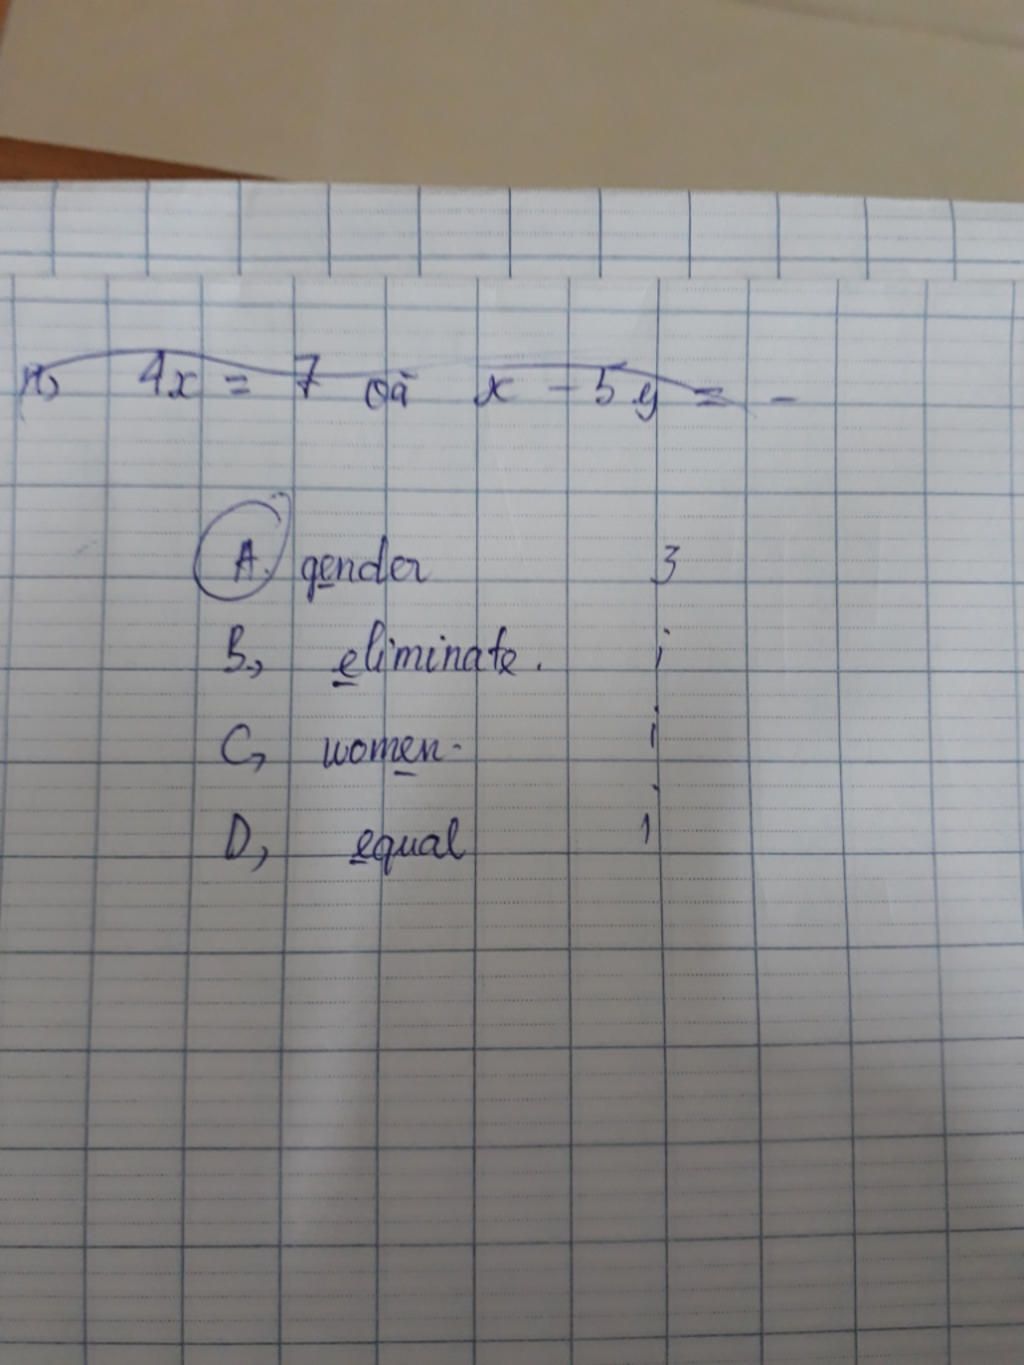 A, 4x = 7 và x - 5y = -
A. gender 3
B, eliminate. i
C, women. i
D, equal i